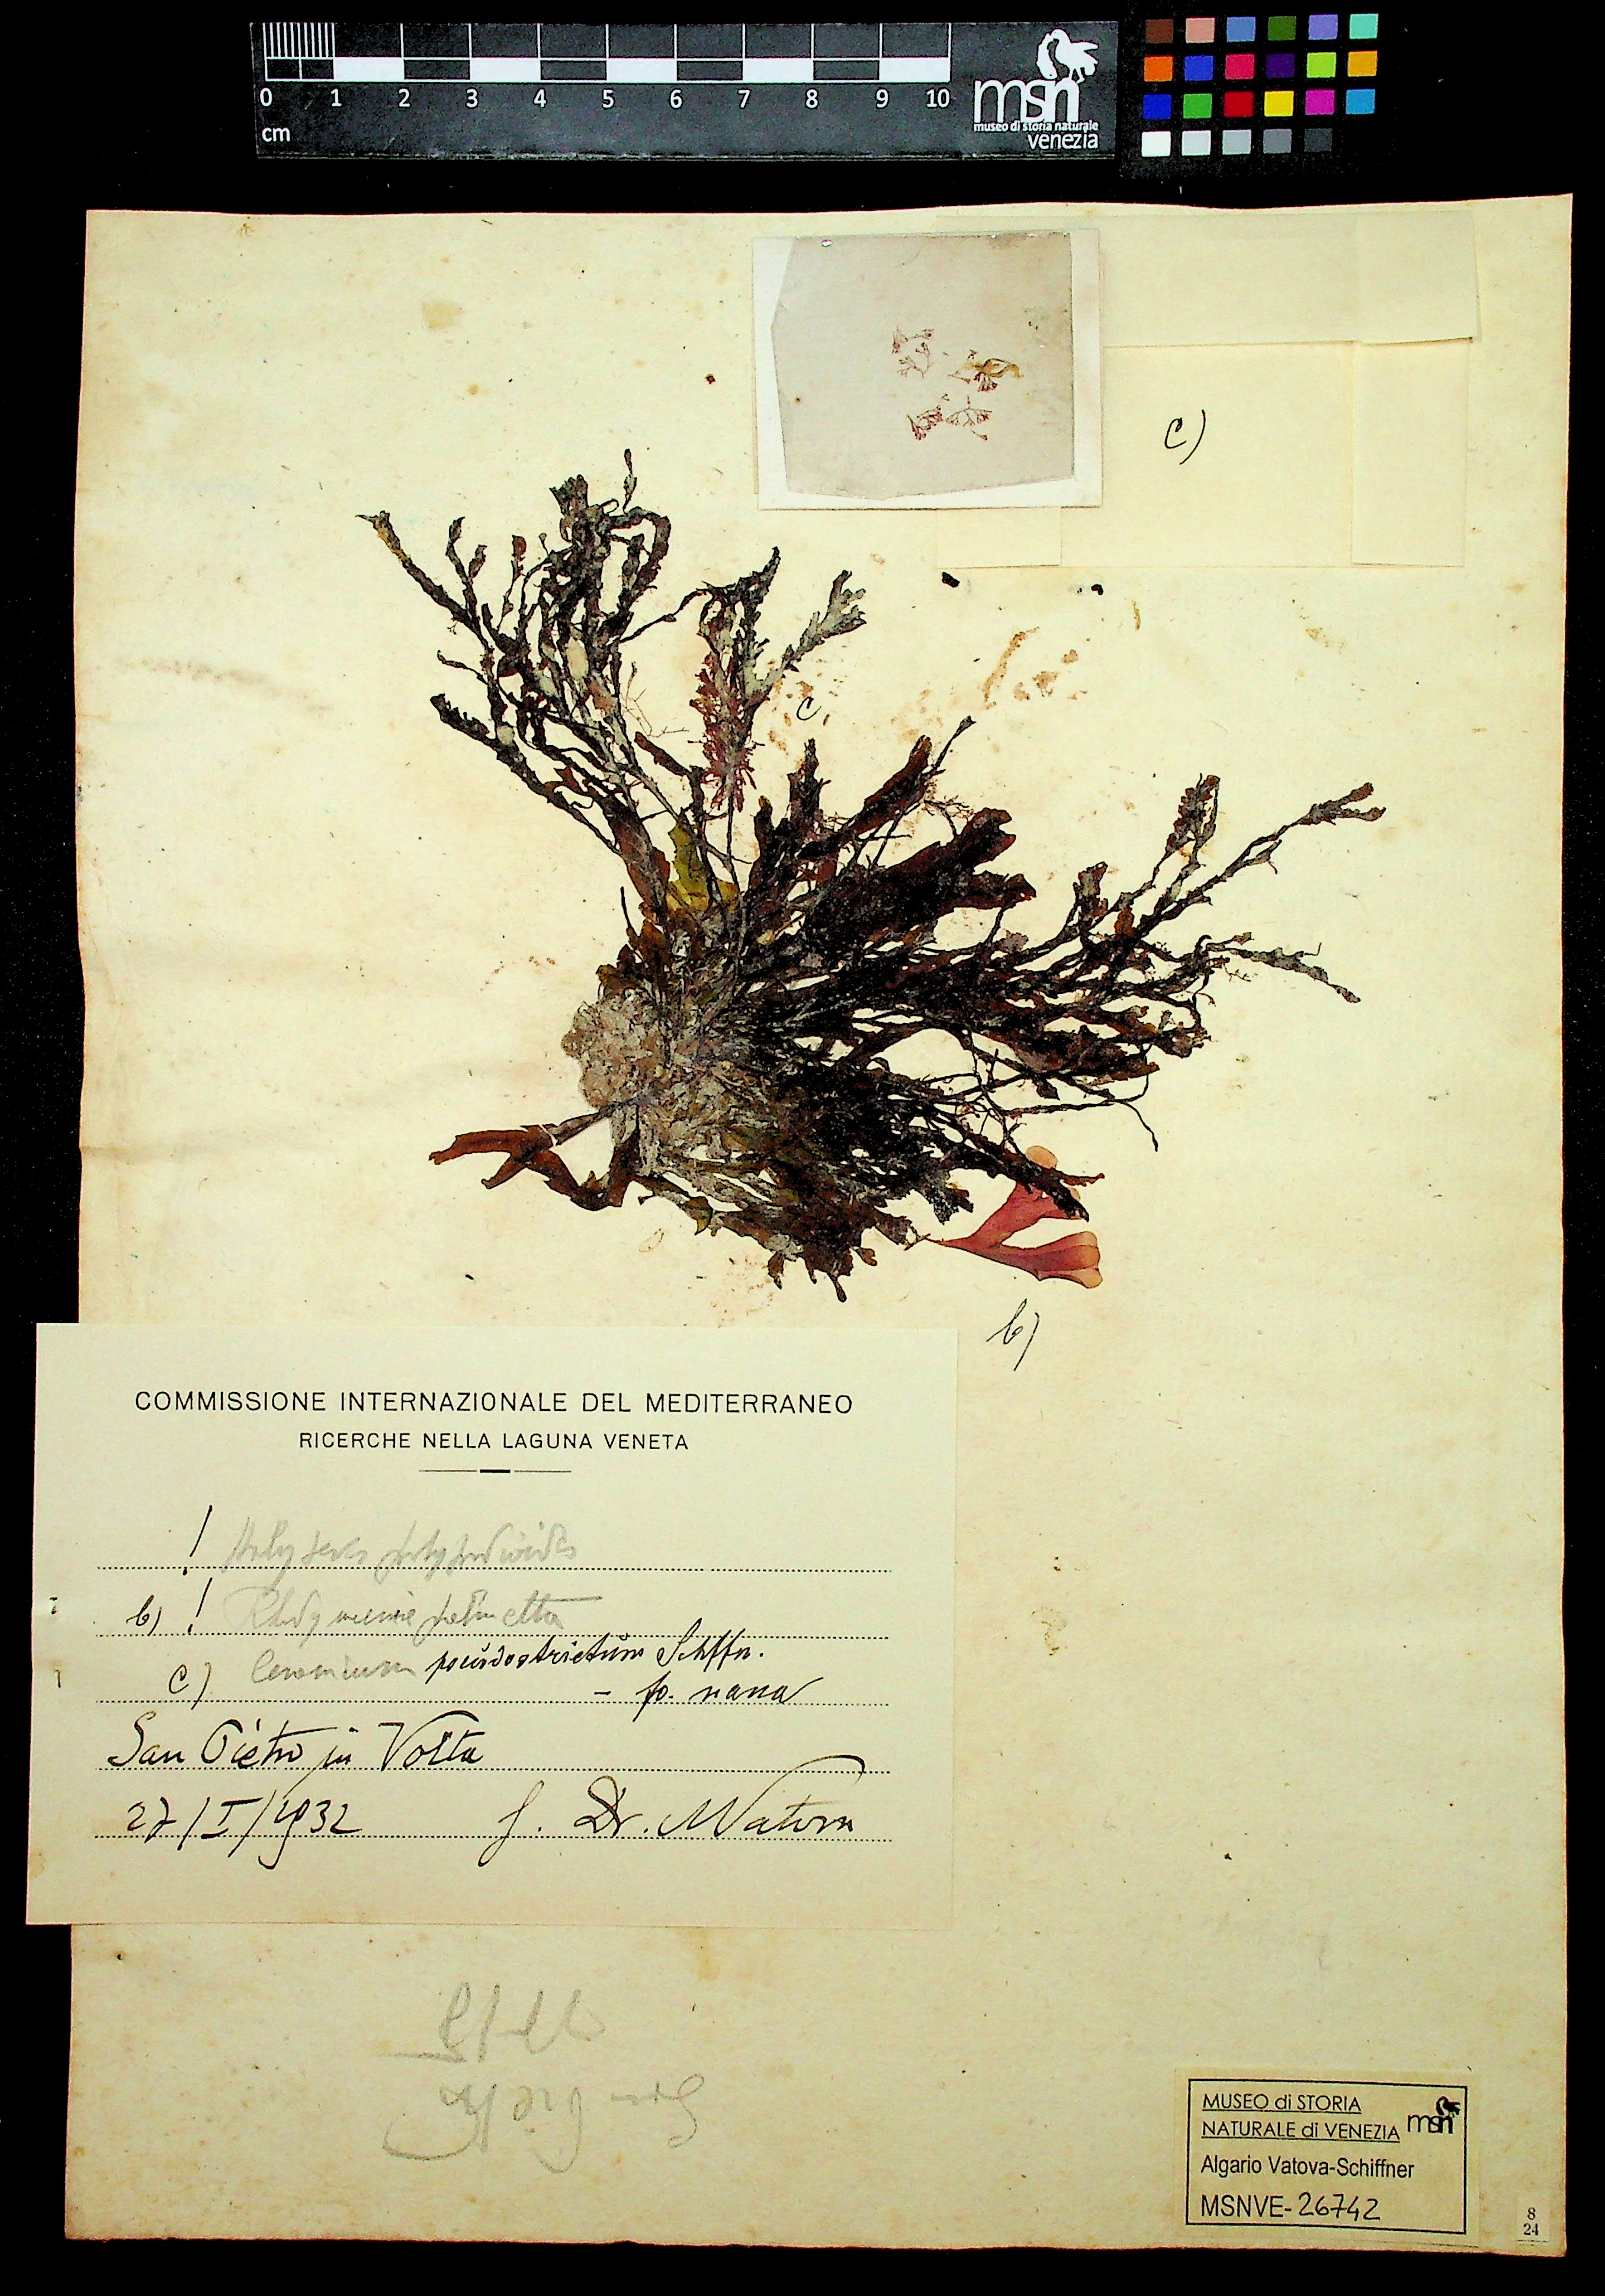 0 1 2 3 4 5 6 7 8 9 10
cm
msn
museo di storia naturale
venezia
c)
c
b)
COMMISSIONE INTERNAZIONALE DEL MEDITERRANEO
RICERCHE NELLA LAGUNA VENETA
!
b) ! Rhodymenia palmetta
c) Ceramium pseudostrictum Schffn.
- fo. nana
San Pietro in Volta
27/I/1932 f. Dr. Vatova
MUSEO di STORIA
NATURALE di VENEZIA msn
Algario Vatova-Schiffner
MSNVE-26742
8
24